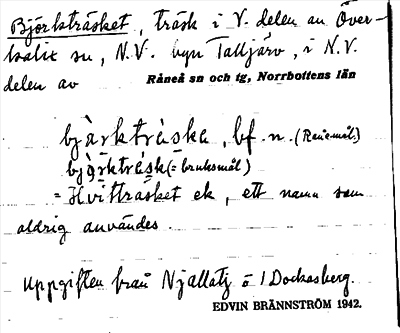 Björkträsket, träsk i V. delen av Över-
kalix sn, N.V. byn Talljärv, i N.V.
delen av Råneå sn och tg, Norrbottens län
bjàrkträ̀ska, bf. n. (Råneåmål.)
bjə̀rkträ̀sk (= bruksmål)
= Hvitträsket ek, ett namn som
aldrig användes.
Uppgiften från Njallatj ö /Dockasberg.
EDVIN BRÄNNSTRÖM 1942.